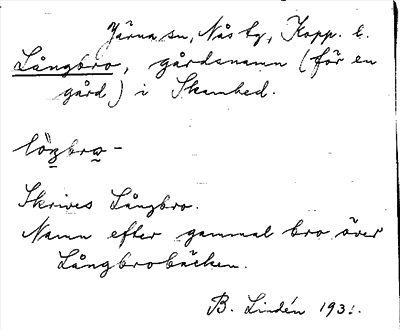 Järna sn, Nås tg, Kopp. l.
Långbro, gårdsnamn (för en
gård) i Skambed.
Skrives Långbro.
Namn efter gammal bro över
Långbrobäcken.
B. Lindén 193